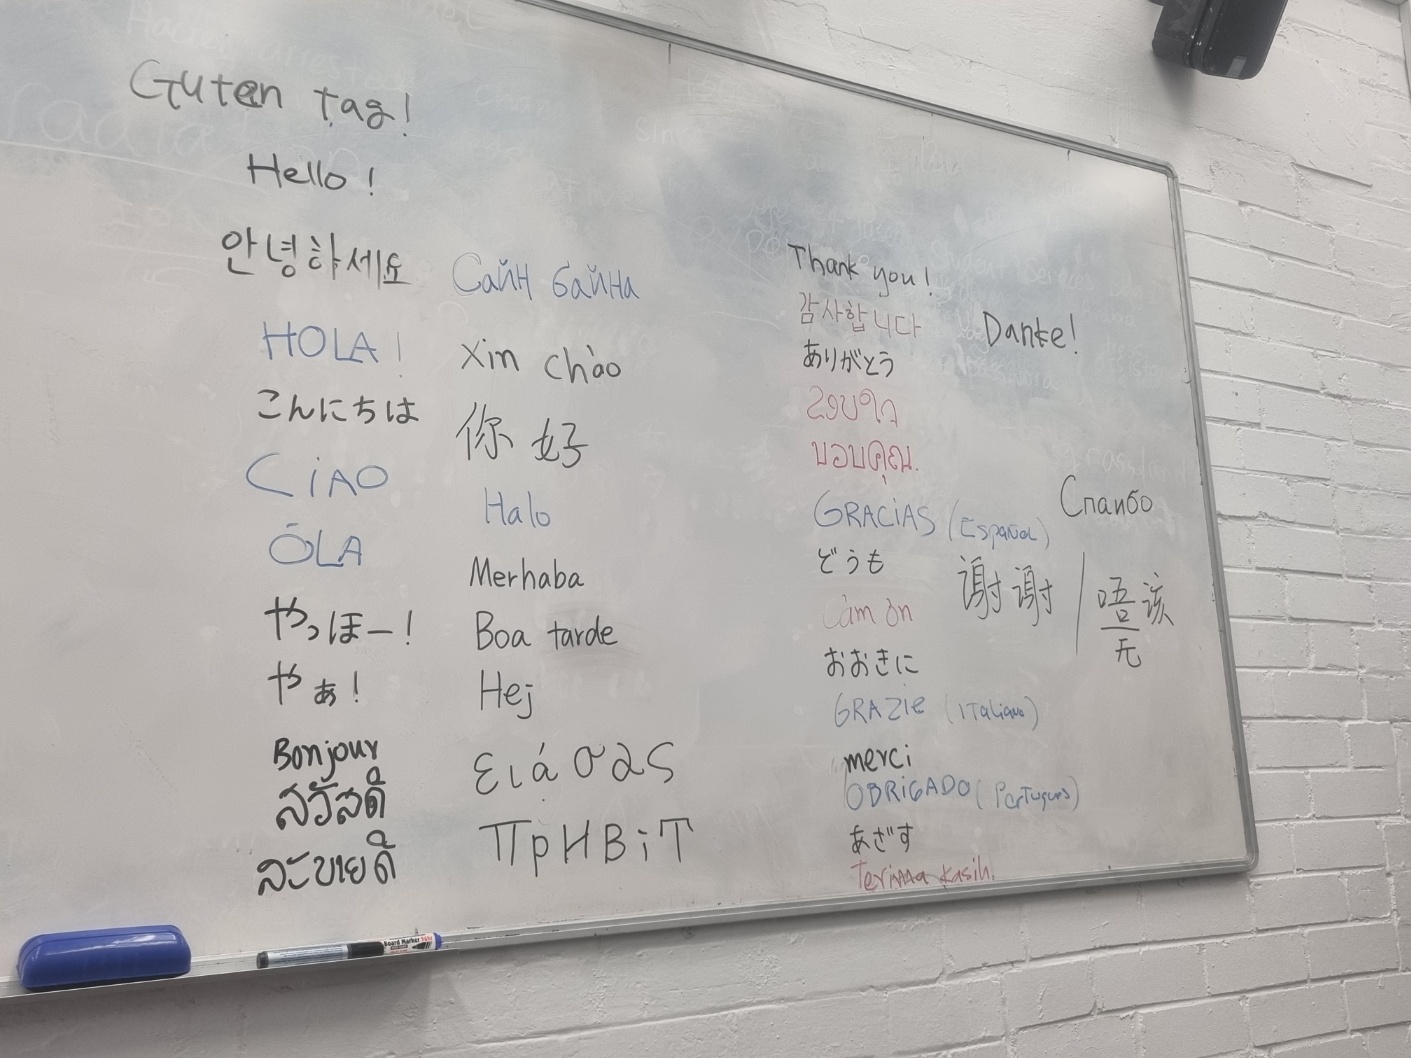 Guten tag!
Hello!
안녕하세요
HOLA!
こんにちは
CiAO
ŌLA
やっほー!
やぁ!
Bonjour
สวัสดี
สะบายดี
Сайн байна
Xin chào
你好
Halo
Merhaba
Boa tarde
Hej
ειά σας
ПрИВіТ
Thank you!
감사합니다
Danke!
ありがとう
ขอบใจ
ขอบคุณ.
GRACiAS (Español)
Спаибо
どうも
谢谢 / 唔该
无
Cảm ơn
おおきに
GRAZie (iTaliano)
merci
OBRiGADO (Portugues)
あざす
Terima kasih.
Board Marker